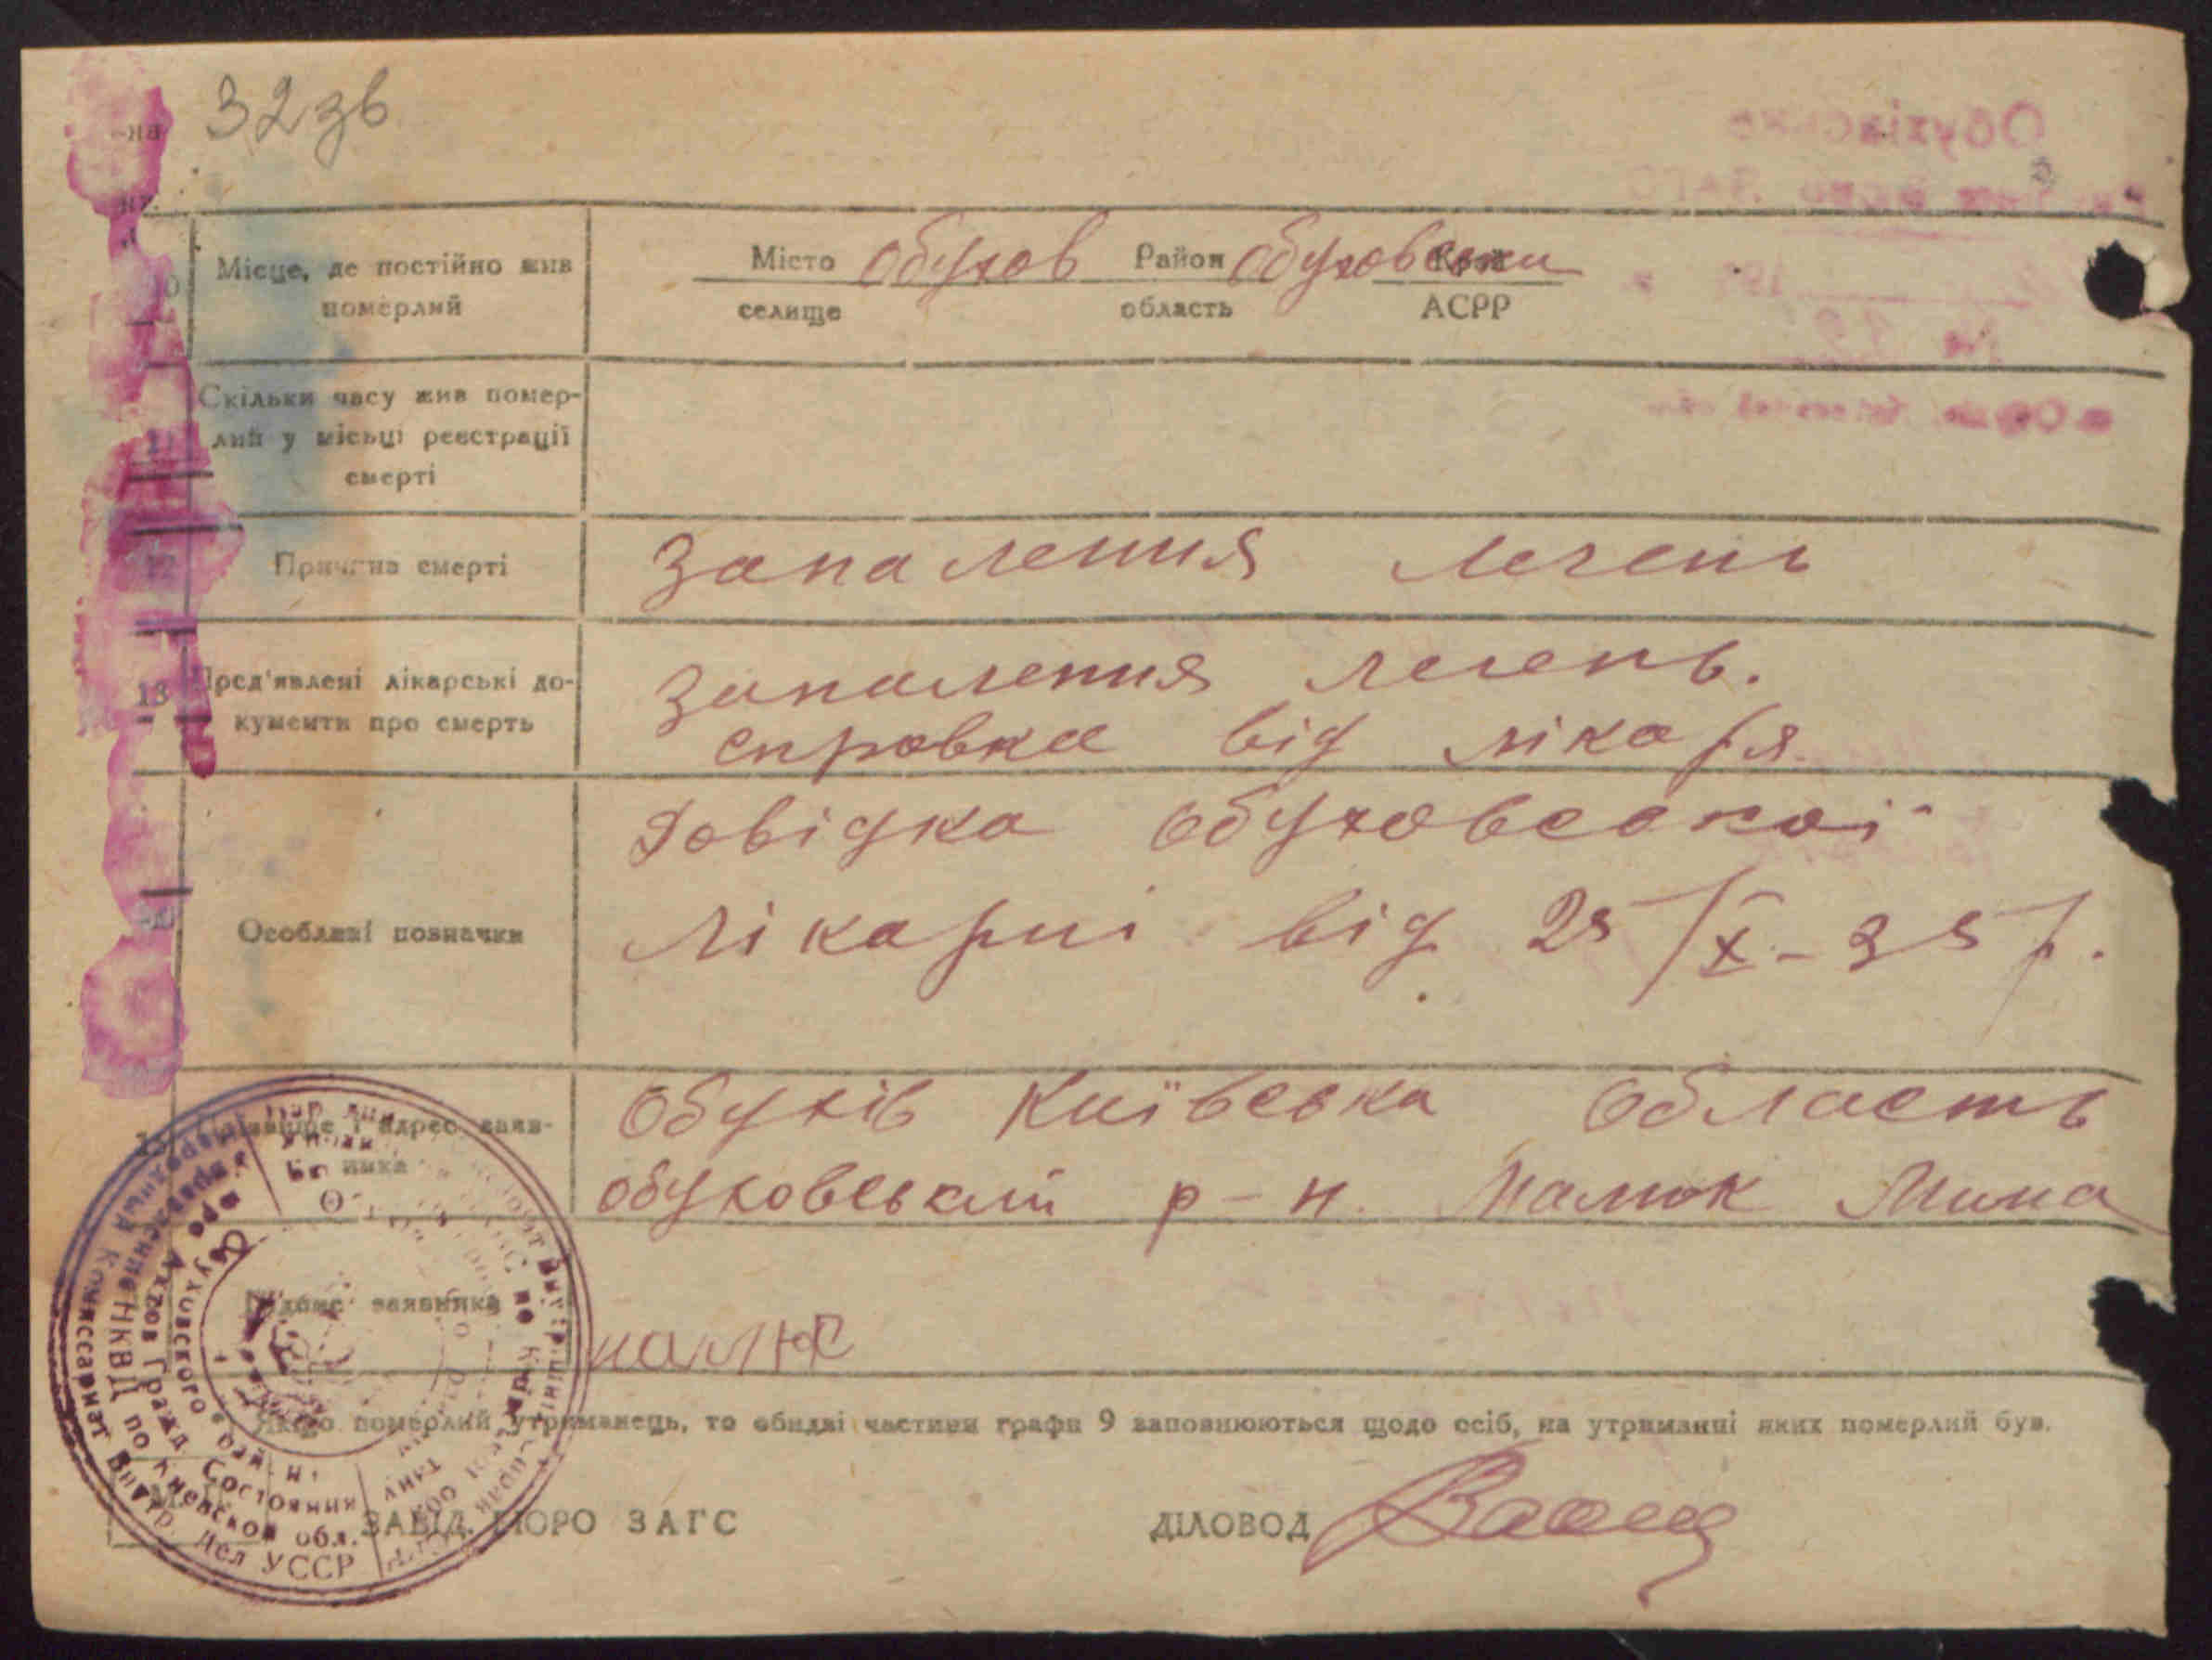 32 зв
Місце, де постійно жив
померлий
Місто Обухов Район Обуховски Край
селище область АСРР
Скільки часу жив помер-
лий у місьці реєстрації
смерті
12 Причина смерті
Запалення легень
13 Пред'явлені лікарські до-
кументи про смерть
Запалення легень.
справка від лікаря.
Особливі позначки
Довідка Обуховської
лікарні від 25/X-35 р.
адрес заяв-
ника
Обухів Київська область
обуховський р-н. Малюк Мина
Підпис заявника
малюк
Якщо померлий утриманець, то обидві частини графи 9 заповнюються щодо осіб, на утриманні яких померлий був.
ЗАВІД. БЮРО ЗАГС ДІЛОВОД
Обуховского
Актов Гражд. Состояния
НКВД по Киевской обл.
Комиссариат Внутр. Дел УССР